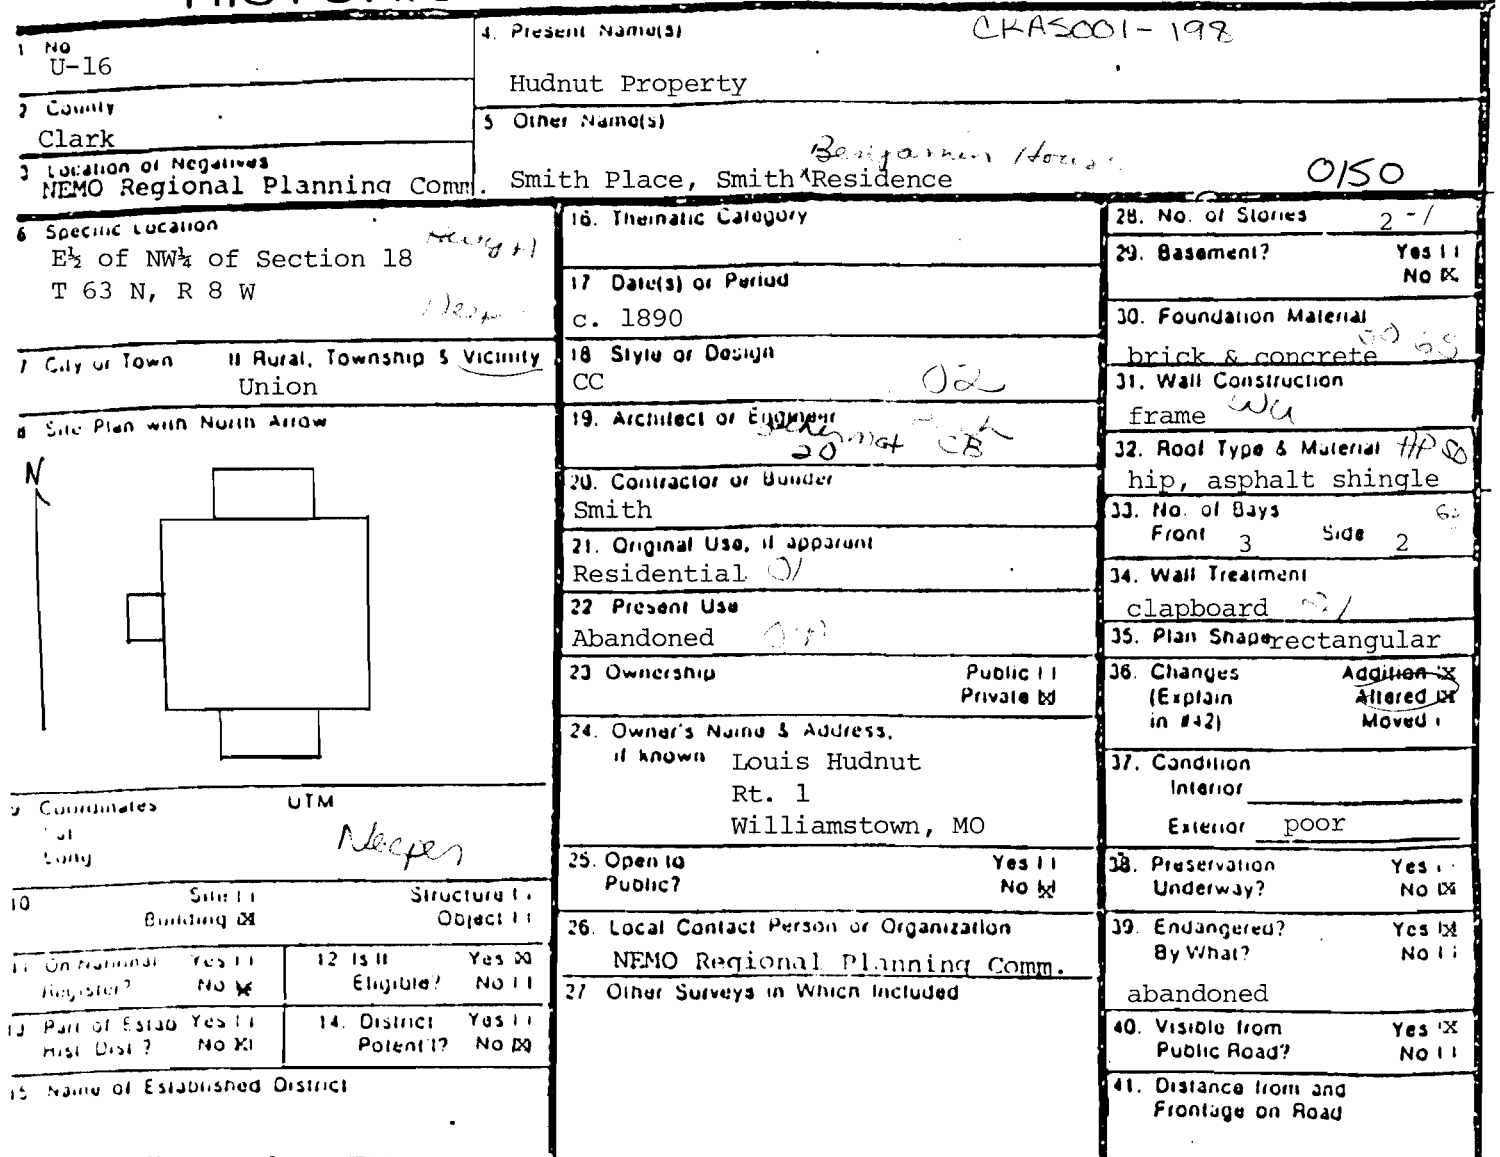 1 No
U-16
4. Present Name(s)
CKAS001-198
Hudnut Property
2 County
Clark
5 Other Name(s)
Benjamin House
Smith Place, Smith ^ Residence
0150
3 Location of Negatives
NEMO Regional Planning Comm.
6 Specific Location
E½ of NW¼ of Section 18
T 63 N, R 8 W
7 City or Town If Rural, Township & Vicinity
Union
8 Site Plan with North Arrow
N
9 Coordinates UTM
Lat
Long
Neeper
10 Site [ ] Structure [ ]
Building [X] Object [ ]
11 On National Register? Yes [ ] No [X]
12 Is It Eligible? Yes [X] No [ ]
13 Part of Estab Hist Dist? Yes [ ] No [X]
14. District Potent'l? Yes [ ] No [X]
15 Name of Established District
16. Thematic Category
17 Date(s) or Period
c. 1890
18 Style or Design
CC 02
19. Architect or Engineer
20 CB
20. Contractor or Builder
Smith
21. Original Use, if apparent
Residential 01
22 Present Use
Abandoned
23 Ownership Public [ ]
Private [X]
24. Owner's Name & Address,
if known Louis Hudnut
Rt. 1
Williamstown, MO
25. Open to Yes [ ]
Public? No [X]
26. Local Contact Person or Organization
NEMO Regional Planning Comm.
27 Other Surveys in Which Included
28. No. of Stories 2
29. Basement? Yes [ ]
No [X]
30. Foundation Material
brick & concrete
31. Wall Construction
frame WU
32. Roof Type & Material HP
hip, asphalt shingle
33. No. of Bays
Front 3 Side 2
34. Wall Treatment
clapboard 21
35. Plan Shape rectangular
36. Changes Addition [X]
(Explain Altered [X]
in #42) Moved [ ]
37. Condition
Interior
Exterior poor
38. Preservation Yes [ ]
Underway? No [X]
39. Endangered? Yes [X]
By What? No [ ]
abandoned
40. Visible from Yes [X]
Public Road? No [ ]
41. Distance from and
Frontage on Road